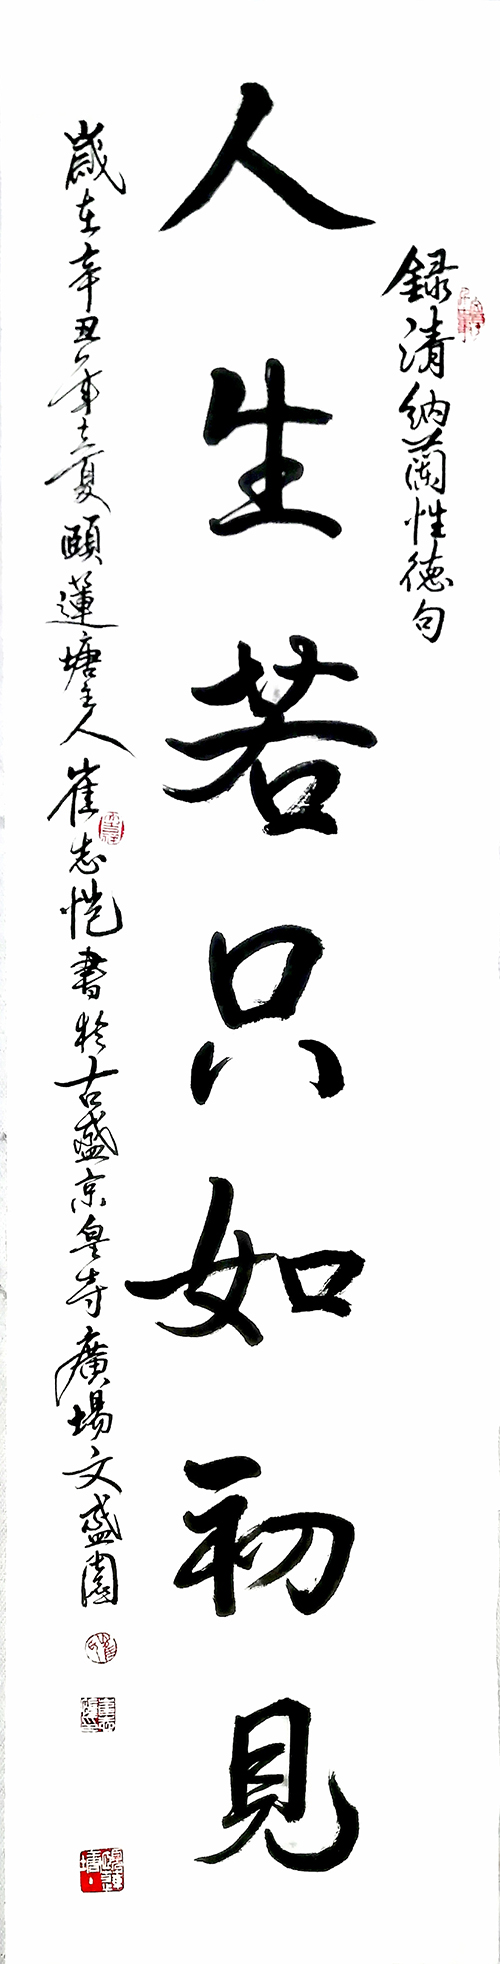 録清納蘭性德句
人生若只如初見
歲在辛丑年立夏頤蓮塘主人崔志愷書於古盛京皇寺廣場文盛園